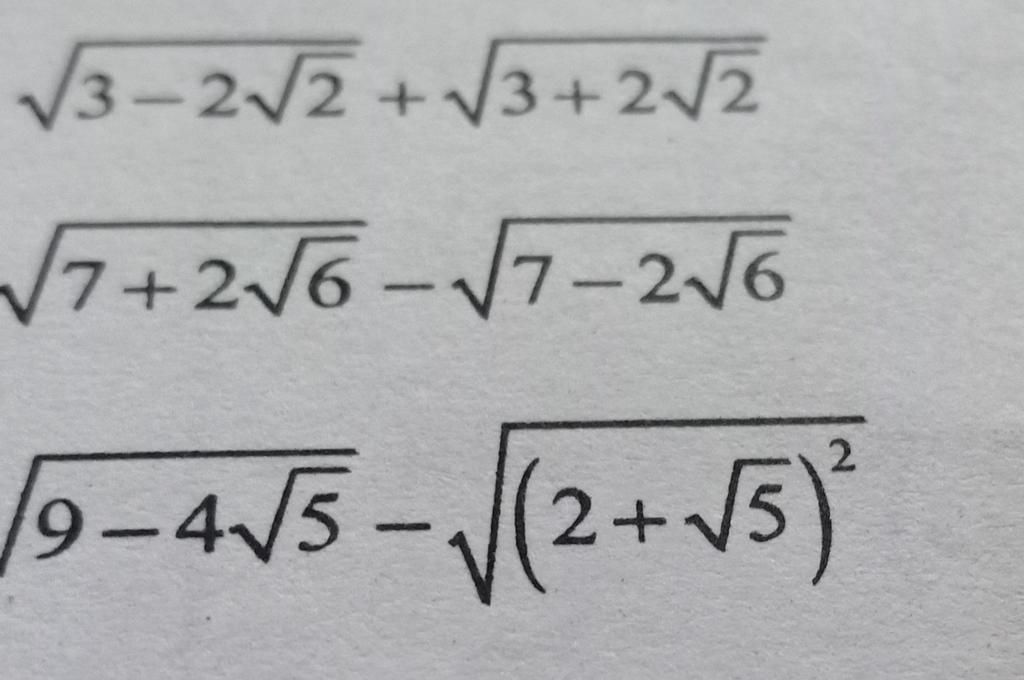 √(3−2√2) + √(3+2√2)
√(7+2√6) − √(7−2√6)
√(9−4√5) − √((2+√5)²)